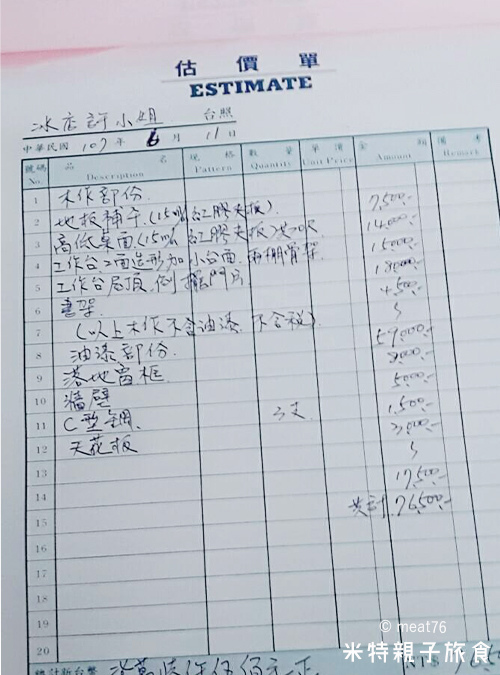 估價單
ESTIMATE
冰店許小姐 台照
中華民國 107 年 6 月 11 日
號碼 No. 品名 Description 規格 Pattern 數量 Quantity 單價 Unit Price 金額 Amount 備考 Remark
1 木作部份
2 地板補平(15㎜紅膠夾板) 7,500.-
3 高低桌面(15㎜紅膠夾板) 14,000.-
4 工作台二面造形加小台面 15,000.-
5 工作台 門片 18,000.-
6 書架 4,500.-
7 (以上木作不含油漆.不含稅)
8 油漆部份. 59,000.-
9 落地窗框 8,000.-
10 牆壁 5,000.-
11 C型鋼. 3支 1,500.-
12 天花板 3,000.-
13
14 17,500.-
15 共計 76,500.-
16
17
18
19
20
總計新台幣 柒萬陸仟伍佰元正 NT$
© meat76
米特親子旅食